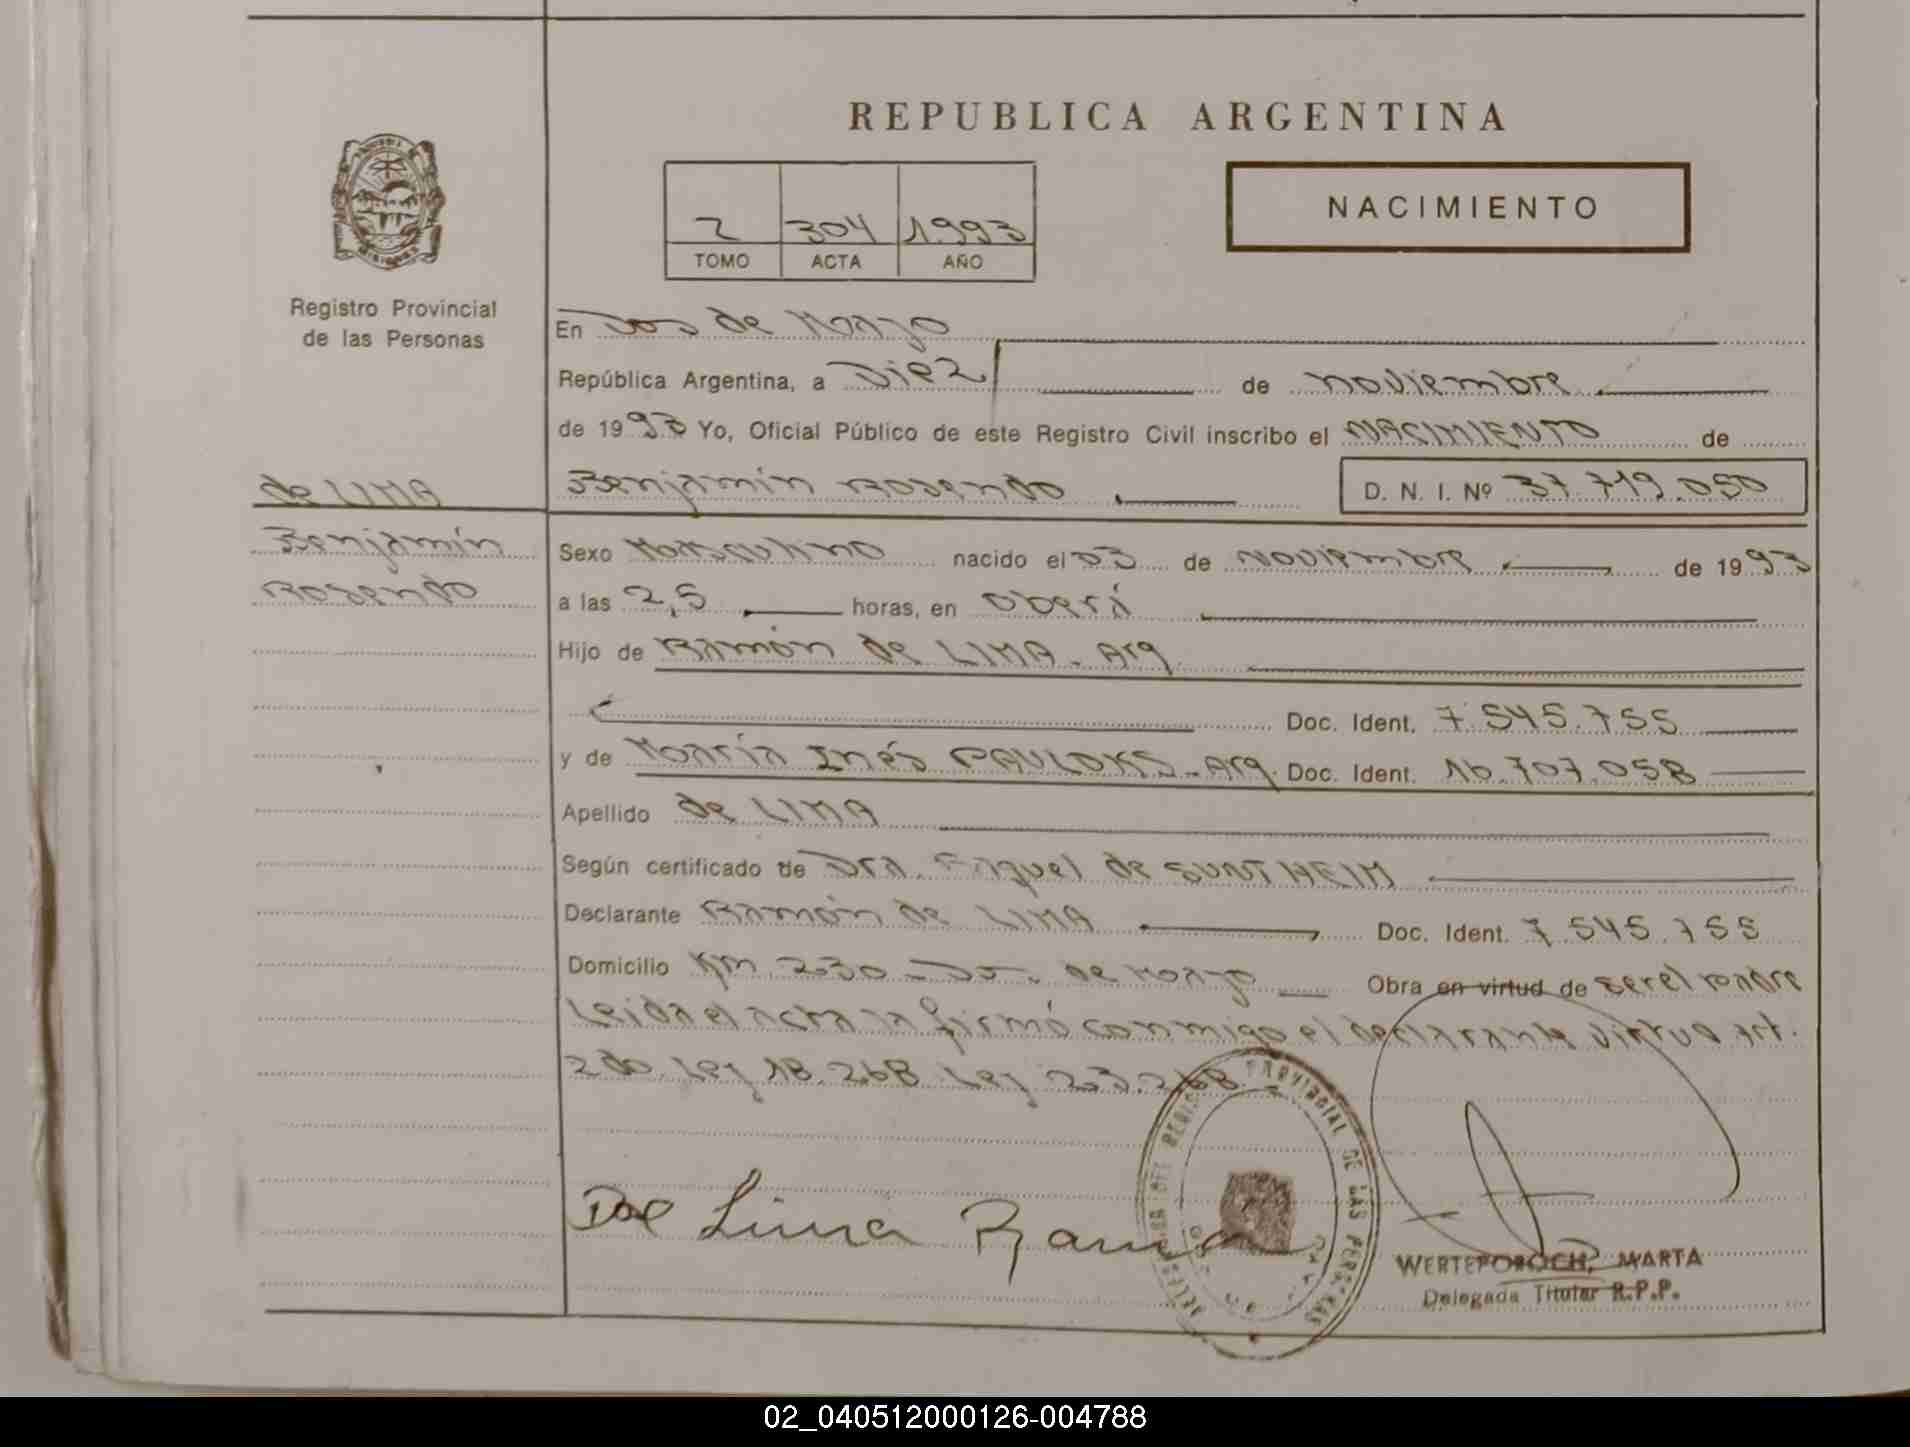 REPUBLICA ARGENTINA
NACIMIENTO
2 304 1993
TOMO ACTA AÑO
Registro Provincial
de las Personas
En Dos de Mayo
República Argentina, a Diez de noviembre
de 1993 Yo, Oficial Público de este Registro Civil inscribo el NACIMIENTO de
de LIMA
Benjamín Rosendo D. N. I. Nº 37.719.050
Benjamín
Rosendo
Sexo Masculino nacido el 03 de noviembre de 1993
a las 2,5 horas, en Oberá
Hijo de Ramón de LIMA - Arg.
Doc. Ident. 7.545.755
y de María Inés PAULOKS - Arg. Doc. Ident. 16.707.058
Apellido de LIMA
Según certificado de Dra. Raquel de SUNTHEIM
Declarante Ramón de LIMA Doc. Ident. 7.545.755
Domicilio Km. 230 - Dos de Mayo Obra en virtud de ser el padre
Leida el acta la firmó conmigo el declarante virtud Art.
2do. Ley 18.268 Ley 23.268
De Lima Ramon
PROVINCIAL DE LAS PERSONAS
WERTEPOROCH, MARTA
Delegada Titular R.P.P.
02_040512000126-004788